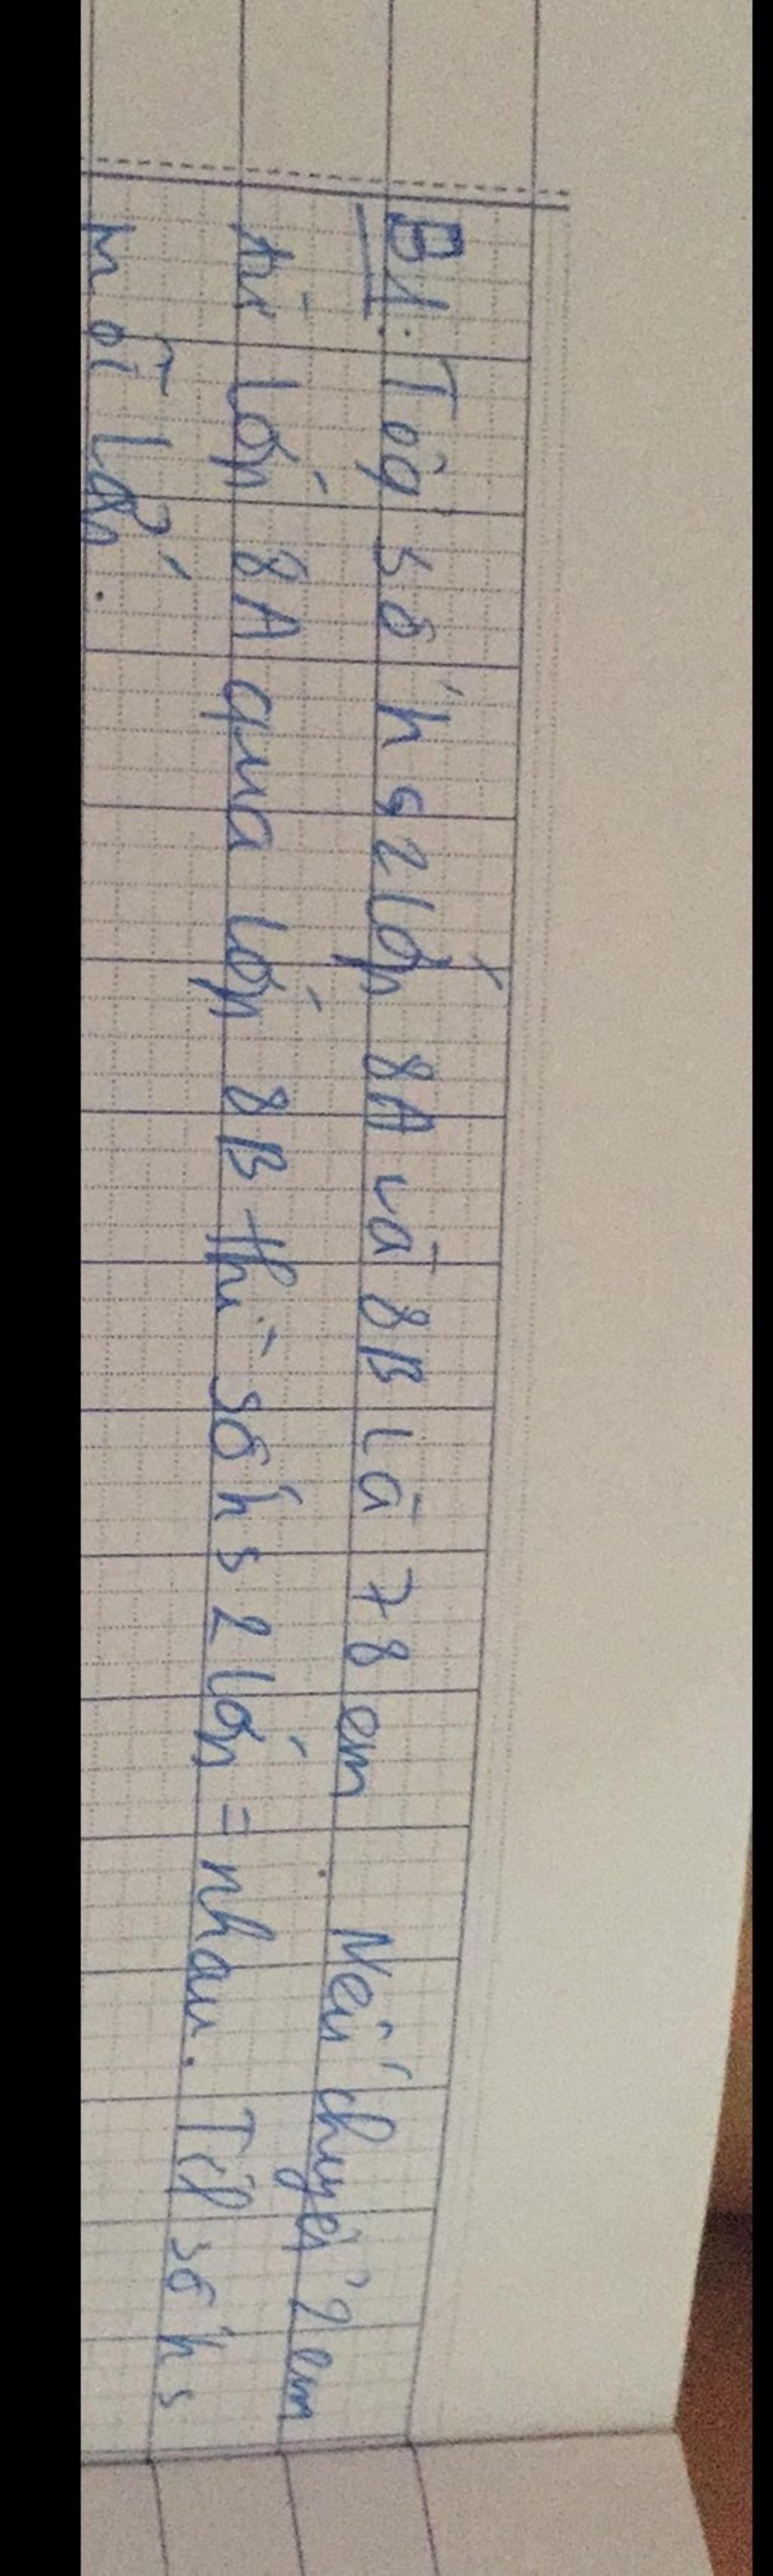 B1: Tổg số hs 2 lớp 8A và 8B là 78 em. Nếu chuyển 2 em
từ lớp 8A qua lớp 8B thì số hs 2 lớp = nhau. Tíh số hs
mỗi lớp.